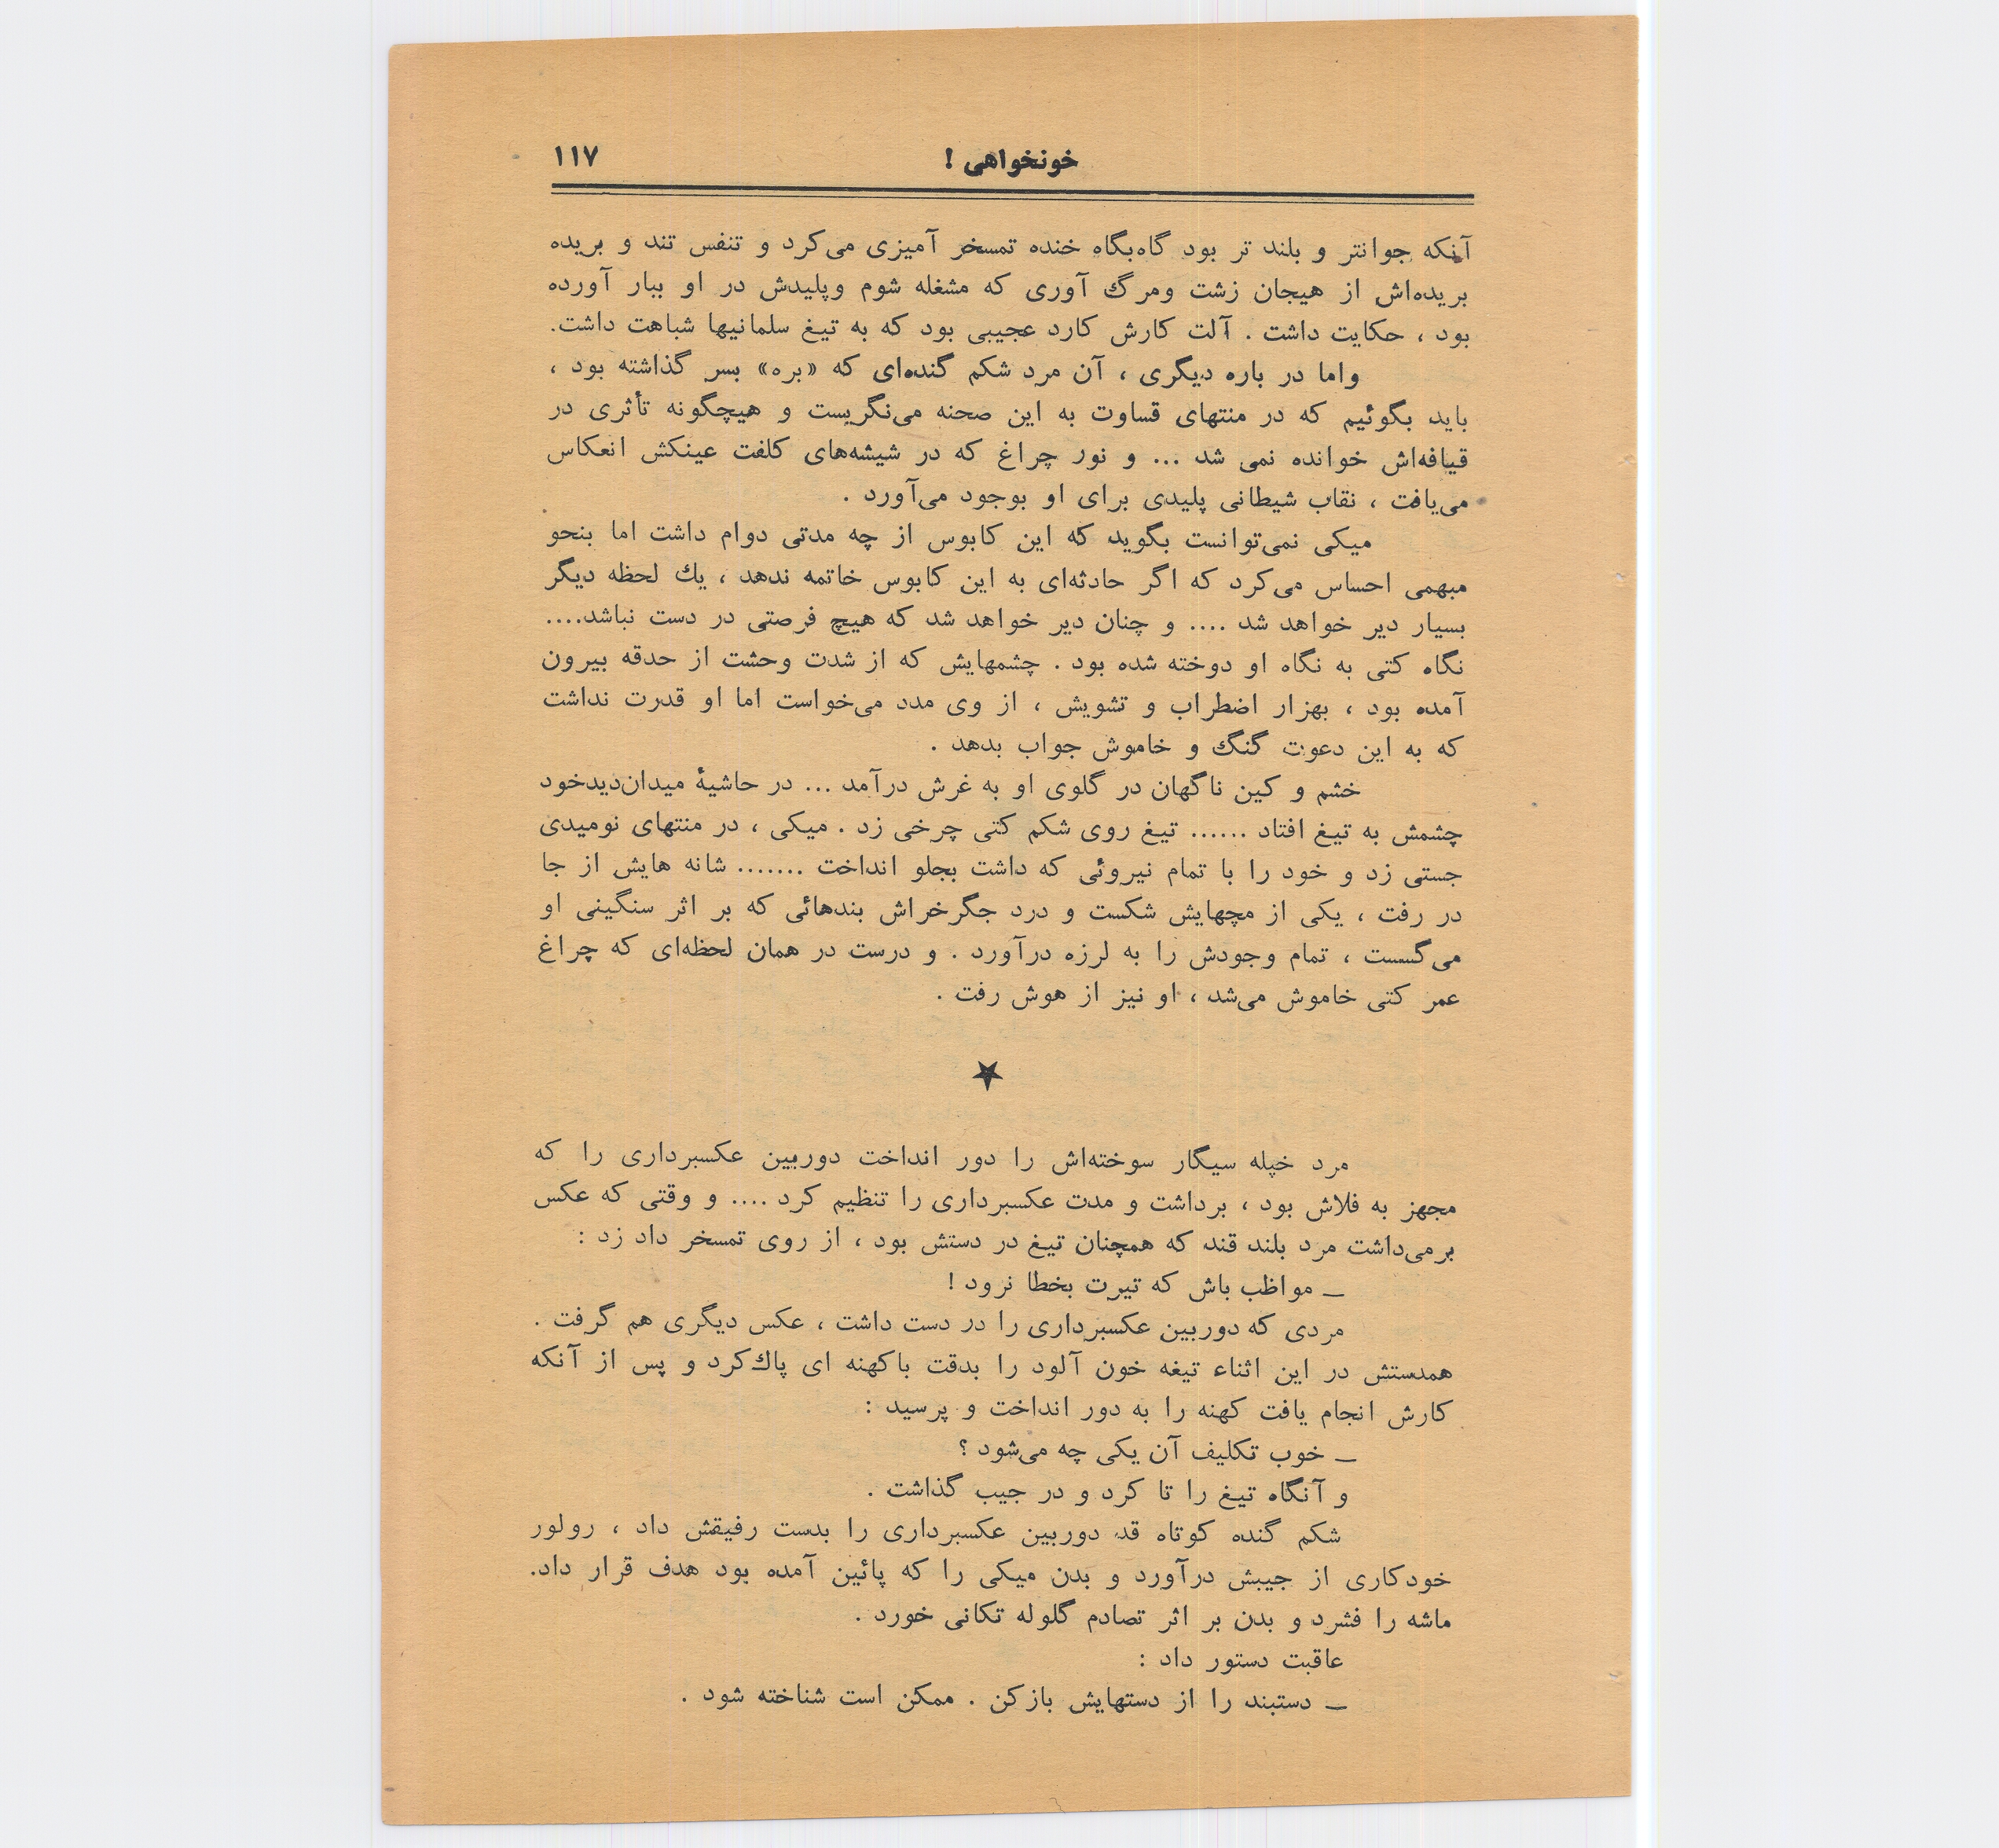 خونخواهی !
۱۱۷
آنکه جوانتر و بلند تر بود گاه‌بگاه خنده تمسخر آمیزی می‌کرد و تنفس تند و بریده
بریده‌اش از هیجان زشت ومرگ آوری که مشغله شوم وپلیدش در او ببار آورده
بود ، حکایت داشت . آلت کارش کارد عجیبی بود که به تیغ سلمانیها شباهت داشت.
واما در باره دیگری ، آن مرد شکم گنده‌ای که «بره» بسر گذاشته بود ،
باید بگوئیم که در منتهای قساوت به این صحنه می‌نگریست و هیچگونه تأثری در
قیافه‌اش خوانده نمی شد ... و نور چراغ که در شیشه‌های کلفت عینکش انعکاس
می‌یافت ، نقاب شیطانی پلیدی برای او بوجود می‌آورد .
میکی نمی‌توانست بگوید که این کابوس از چه مدتی دوام داشت اما بنحو
مبهمی احساس می‌کرد که اگر حادثه‌ای به این کابوس خاتمه ندهد ، یك لحظه دیگر
بسیار دیر خواهد شد .... و چنان دیر خواهد شد که هیچ فرصتی در دست نباشد....
نگاه کتی به نگاه او دوخته شده بود . چشمهایش که از شدت وحشت از حدقه بیرون
آمده بود ، بهزار اضطراب و تشویش ، از وی مدد می‌خواست اما او قدرت نداشت
که به این دعوت گنگ و خاموش جواب بدهد .
خشم و کین ناگهان در گلوی او به غرش درآمد ... در حاشیهٔ میدان‌دیدخود
چشمش به تیغ افتاد ...... تیغ روی شکم کتی چرخی زد . میکی ، در منتهای نومیدی
جستی زد و خود را با تمام نیروئی که داشت بجلو انداخت ....... شانه هایش از جا
در رفت ، یکی از مچهایش شکست و درد جگرخراش بندهائی که بر اثر سنگینی او
می‌گسست ، تمام وجودش را به لرزه درآورد . و درست در همان لحظه‌ای که چراغ
عمر کتی خاموش می‌شد ، او نیز از هوش رفت .
★
مرد خپله سیگار سوخته‌اش را دور انداخت دوربین عکسبرداری را که
مجهز به فلاش بود ، برداشت و مدت عکسبرداری را تنظیم کرد .... و وقتی که عکس
برمی‌داشت مرد بلند قند که همچنان تیغ در دستش بود ، از روی تمسخر داد زد :
ـ مواظب باش که تیرت بخطا نرود !
مردی که دوربین عکسبرداری را در دست داشت ، عکس دیگری هم گرفت .
همدستش در این اثناء تیغه خون آلود را بدقت باکهنه ای پاك‌کرد و پس از آنکه
کارش انجام یافت کهنه را به دور انداخت و پرسید :
ـ خوب تکلیف آن یکی چه می‌شود ؟
و آنگاه تیغ را تا کرد و در جیب گذاشت .
شکم گنده کوتاه قد دوربین عکسبرداری را بدست رفیقش داد ، رولور
خودکاری از جیبش درآورد و بدن میکی را که پائین آمده بود هدف قرار داد.
ماشه را فشرد و بدن بر اثر تصادم گلوله تکانی خورد .
عاقبت دستور داد :
ـ دستبند را از دستهایش بازکن . ممکن است شناخته شود .